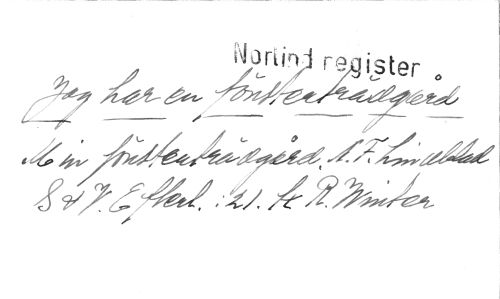 Norlind register
Jag har en fönsterträdgård
Min fönsterträdgård. A. F. Lindblad
S & V. Efterl. :21. till R. Winter